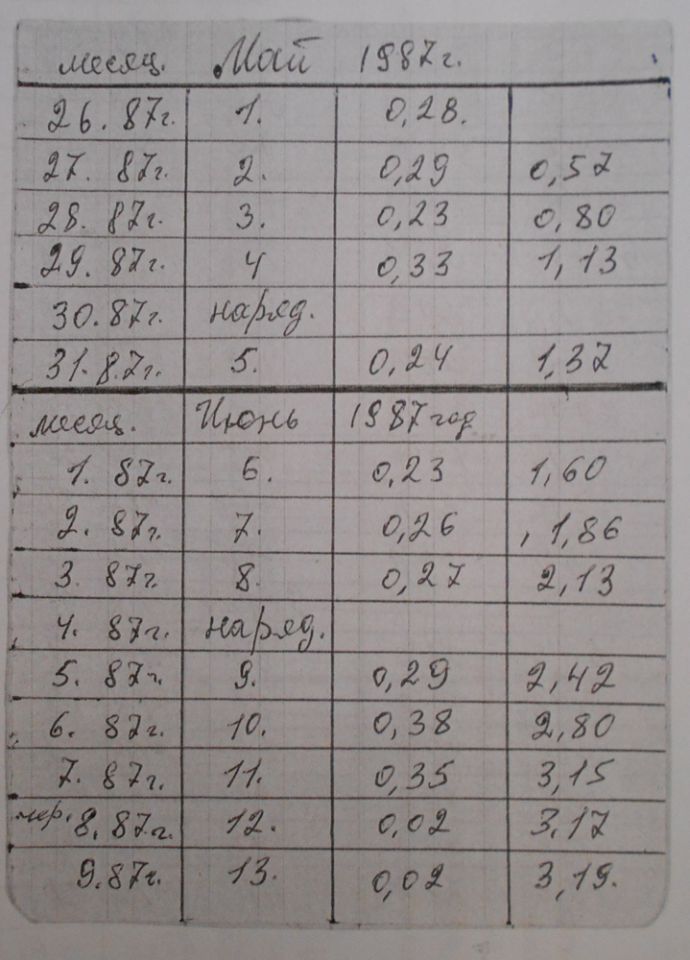 месяц. Май 1987г.
26. 87г. 1. 0,28.
27. 87г. 2. 0,29 0,57
28. 87г. 3. 0,23 0,80
29. 87г. 4 0,33 1,13
30. 87г. наряд.
31. 87г. 5. 0,24 1,37
месяц. Июнь 1987 год
1. 87г. 6. 0,23 1,60
2. 87г. 7. 0,26 1,86
3. 87г. 8. 0,27 2,13
4. 87г. наряд.
5. 87г. 9. 0,29 2,42
6. 87г. 10. 0,38 2,80
7. 87г. 11. 0,35 3,15
8. 87г. 12. 0,02 3,17
9. 87г. 13. 0,02 3,19.